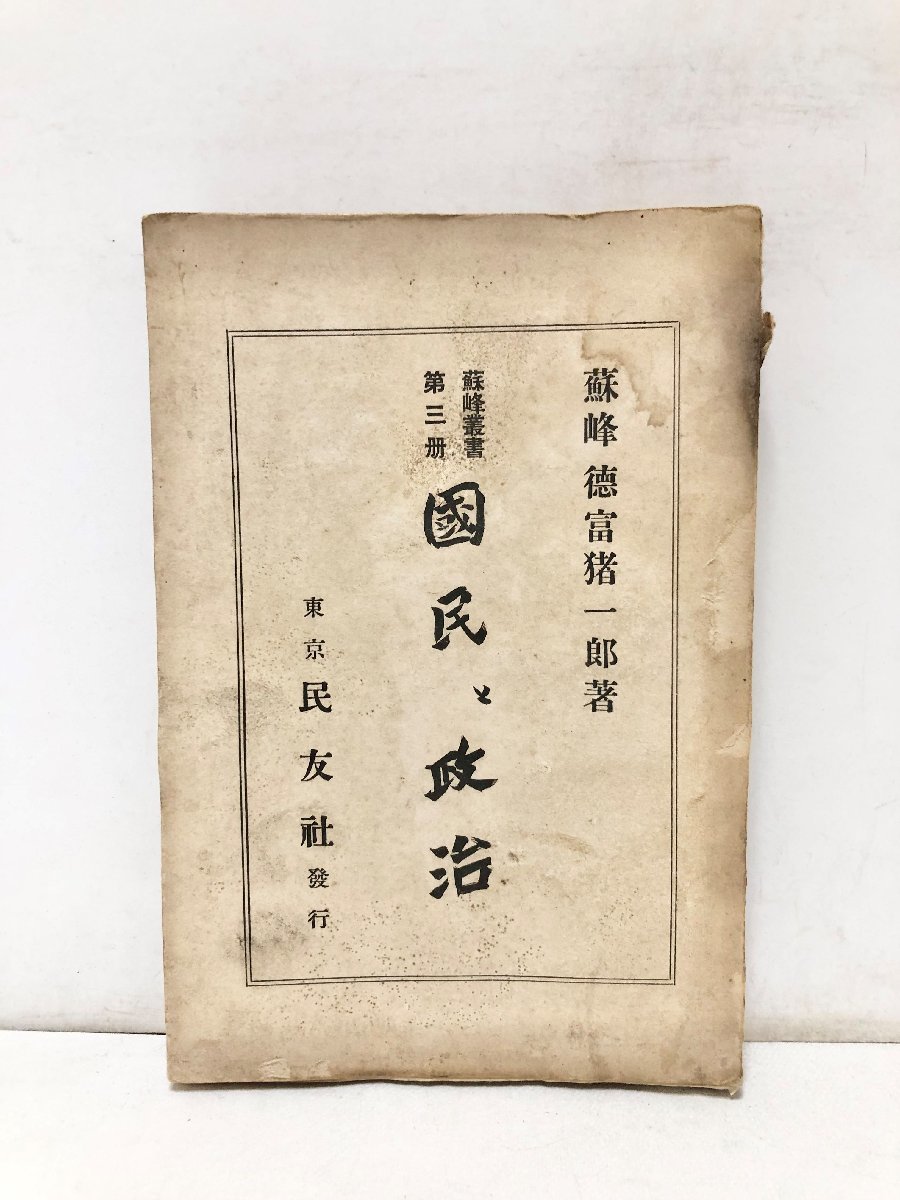 蘇峰 德富猪一郎著
蘇峰叢書
第三册
國民と政治
東京民友社發行